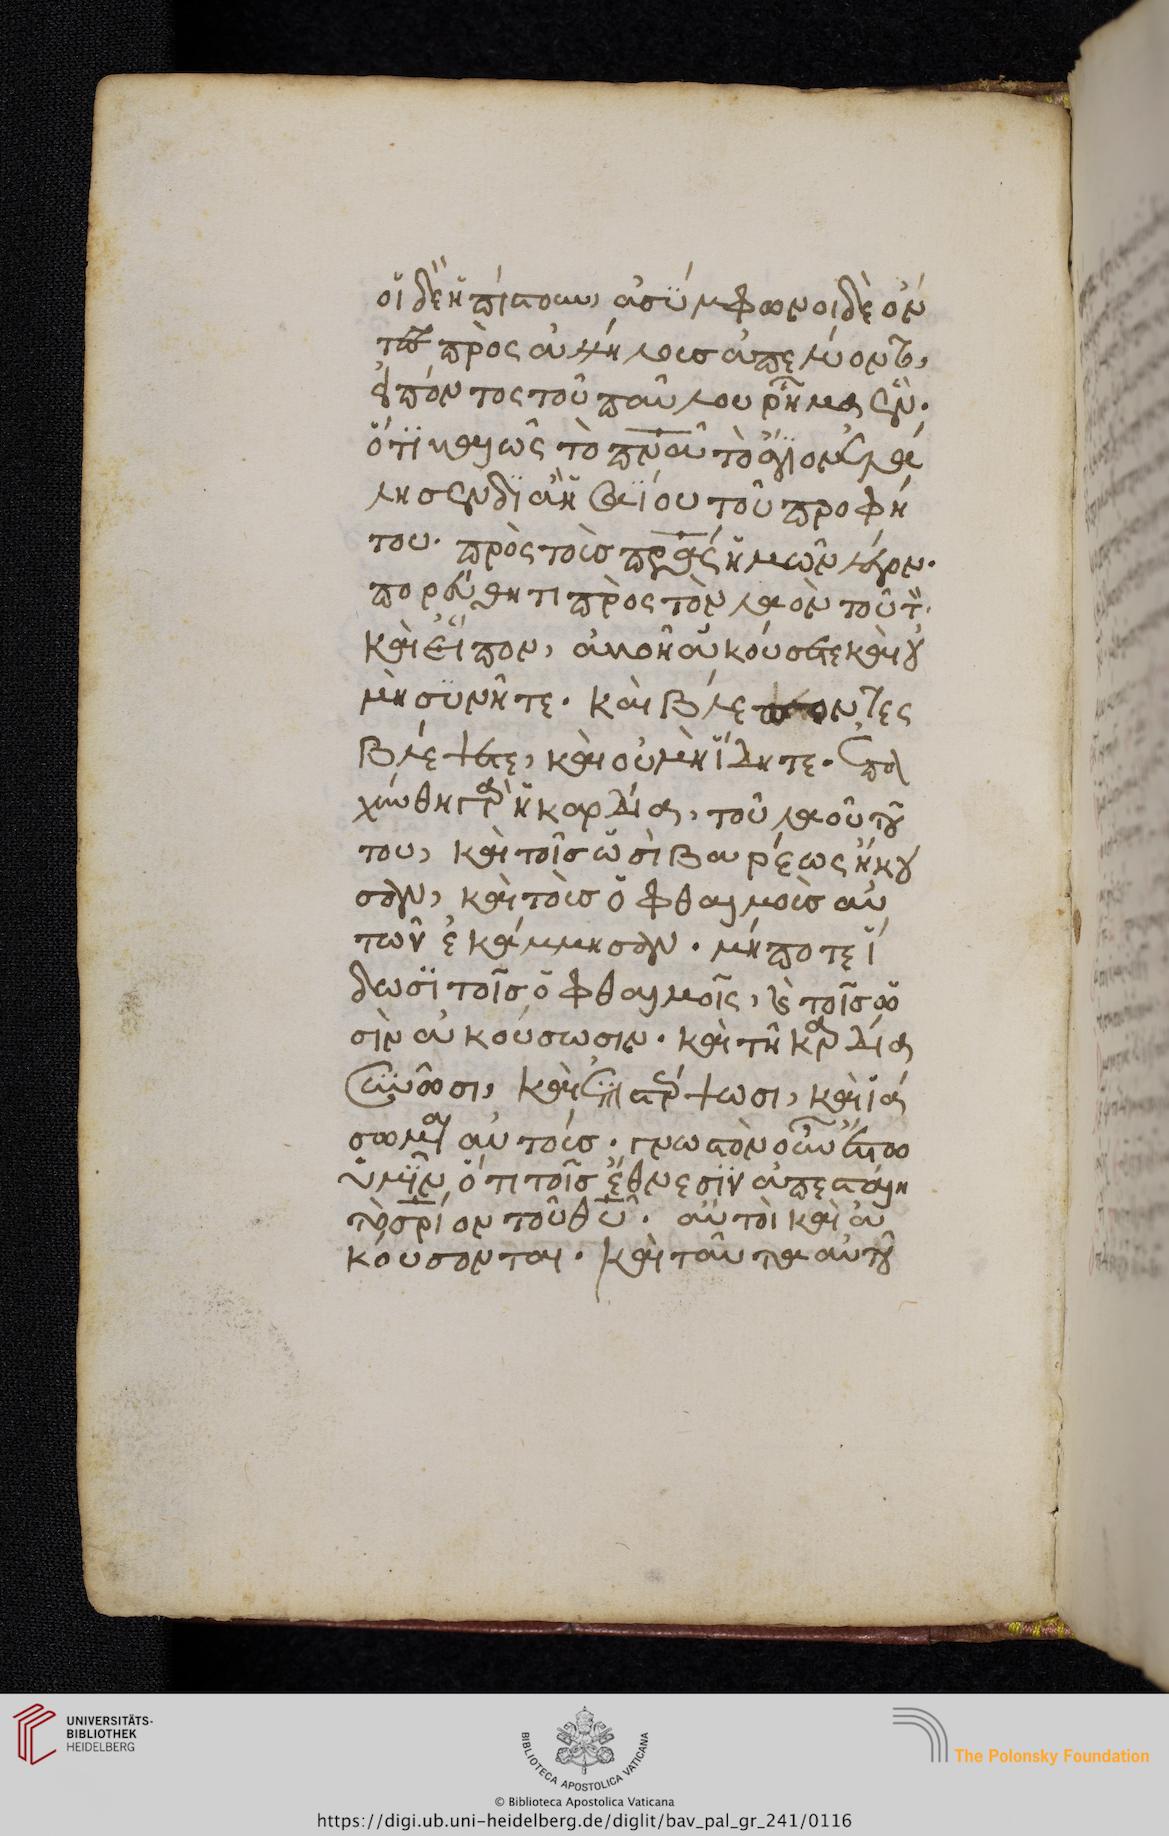 οἱ δὲ ἠπίστουν, ἀσύμφωνοι δὲ ὄν
τες πρὸς ἀλλήλους ἀπελύοντο,
εἰπόντος τοῦ παύλου ῥῆμα ἕν.
ὅτι καλῶς τὸ πνα τὸ ἅγιον ἐλά
λησεν διὰ ἡσαΐου τοῦ προφή
του. πρὸς τοὺς πρας ἡμῶν λέγον.
πορεύθητι πρὸς τὸν λαὸν τοῦτον.
καὶ εἶπον, ἀκοῆ ἀκούσετε καὶ οὐ
μὴ συνῆτε. καὶ βλέποντες
βλέψετε, καὶ οὐ μὴ ἴδητε. ἐπα
χύνθη γὰρ ἡ καρδία, τοῦ λαοῦ τού
του, καὶ τοῖς ὠσὶ βαρέως ἤκου
σαν, καὶ τοὺς ὀφθαλμοὺς αὐ
τῶν ἐκάμμησαν. μήποτε ἴ
δωσι τοῖς ὀφθαλμοῖς, καὶ τοῖς ὠ
σὶν ἀκούσωσιν. καὶ τῆ καρδία
συνῶσι, καὶ ἐπιστρέψωσι, καὶ ἰά
σωμαι αὐτούς. γνωστὸν οὖν ἔστω
ὑμῖν, ὅτι τοῖς ἔθνεσιν ἀπεστάλη
τὸ σρίον τοῦ θυ. αὐτοὶ καὶ ἀ
κούσονται. καὶ ταῦτα αὐτοῦ
UNIVERSITÄTS-
BIBLIOTHEK
HEIDELBERG
BIBLIOTECA APOSTOLICA VATICANA
© Biblioteca Apostolica Vaticana
The Polonsky Foundation
https://digi.ub.uni-heidelberg.de/diglit/bav_pal_gr_241/0116